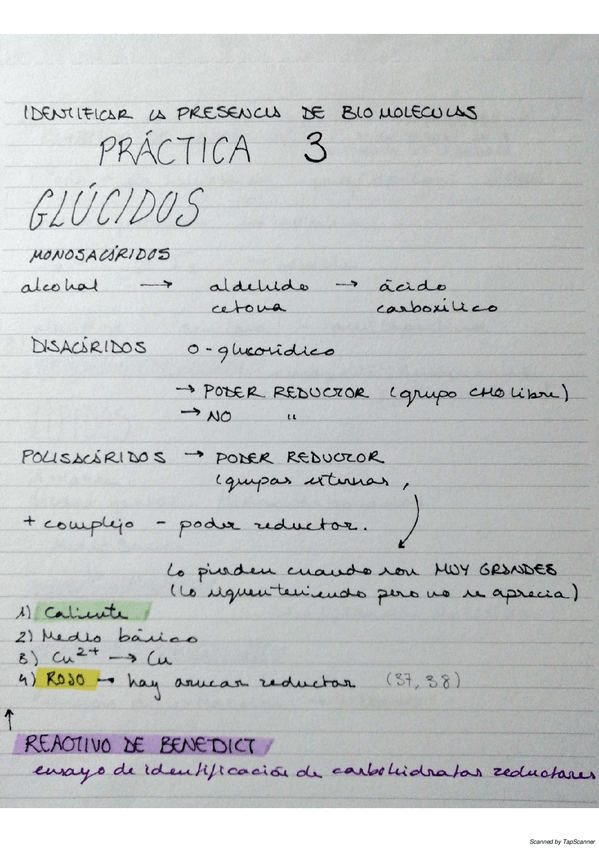 IDENTIFICAR LA PRESENCIA DE BIOMOLECULAS
PRÁCTICA 3
GLÚCIDOS
MONOSACÁRIDOS
alcohol → aldehido → ácido
cetona carboxílico
DISACÁRIDOS O-glucosídico
→ PODER REDUCTOR (grupo CHO libre)
→ NO "
POLISACÁRIDOS → PODER REDUCTOR
(grupos externos,
+ complejo - poder reductor.
Lo pierden cuando son MUY GRANDES
(lo siguen teniendo pero no se aprecia)
1) Caliente
2) Medio básico
3) Cu2+ → Cu
4) ROJO → hay azucar reductor (37, 38)
↑
REACTIVO DE BENEDICT
ensayo de identificación de carbohidratos reductores
Scanned by TapScanner